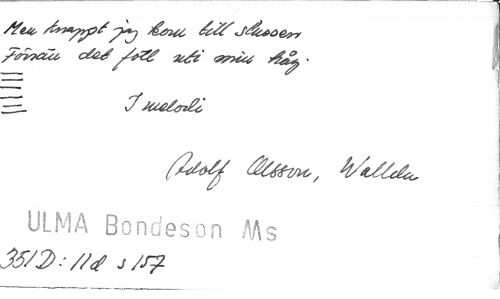 Men knappt jag kom till slussen
Förrän det föll uti min håg.
I melodi
Adolf Olsson, Wallda
ULMA Bondeson Ms
351D: 11d s 157